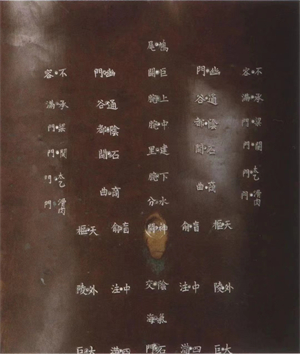 鳩尾
不容 幽門 巨闕 幽門 不容
承滿 通谷 上脘 通谷 承滿
梁門 陰都 中脘 陰都 梁門
關門 石關 建里 石關 關門
太乙門 商曲 下脘 商曲 太乙門
滑肉門 水分 滑肉門
天樞 肓俞 神闕 肓俞 天樞
外陵 中注 陰交 中注 外陵
氣海
大巨 四滿 石門 四滿 大巨